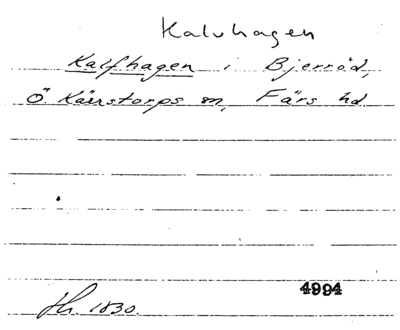 Kalvhagen
Kalfhagen i Bjerröd,
Ö. Kärrstorps sn, Färs hd
4994
Hr. 1830.